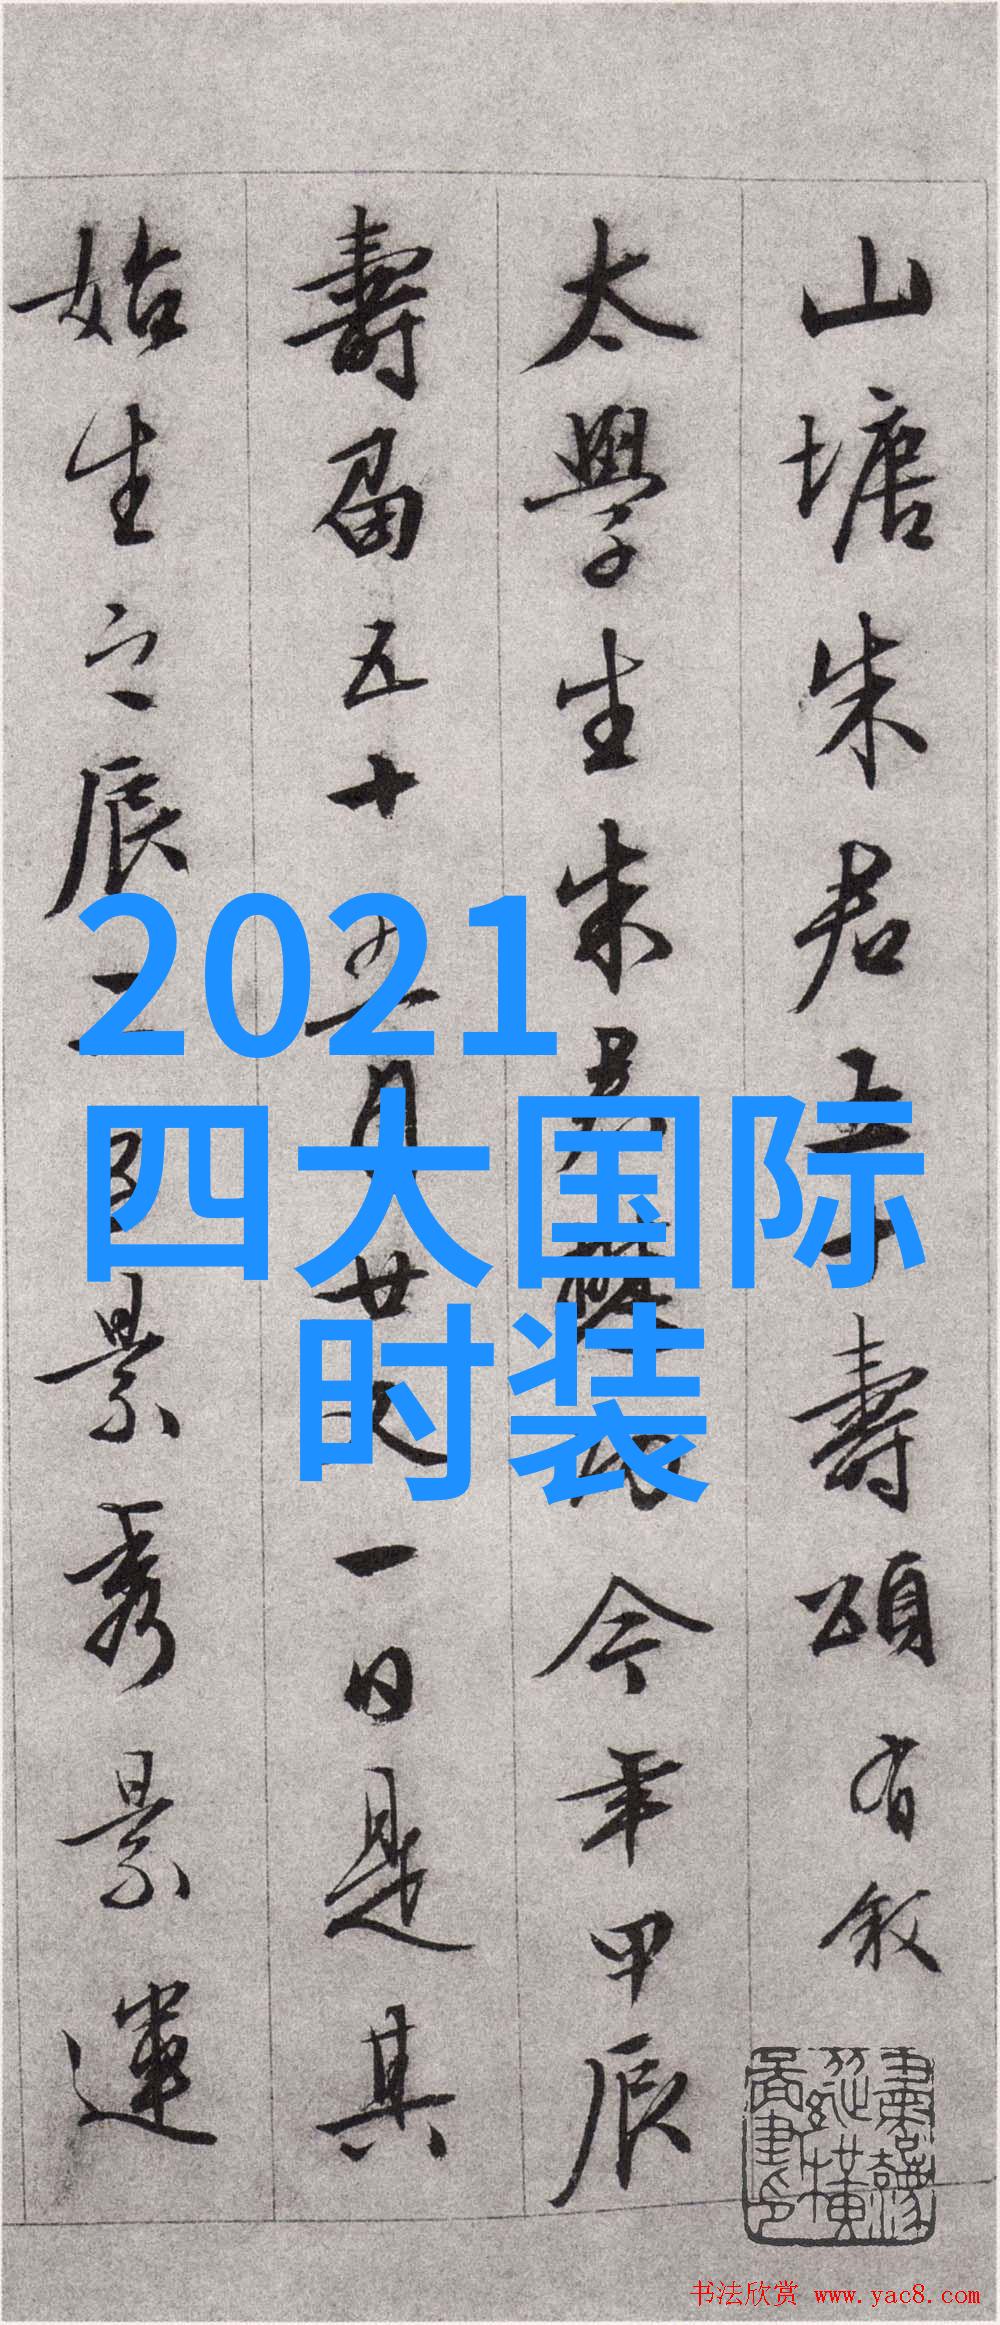 山塘朱君五十壽頌有敘
太學生朱君今年甲辰
壽屆五十月廿又一日是其
始生之辰景秀景運
2021
四大国际
时装
书法欣赏 www.yac8.com